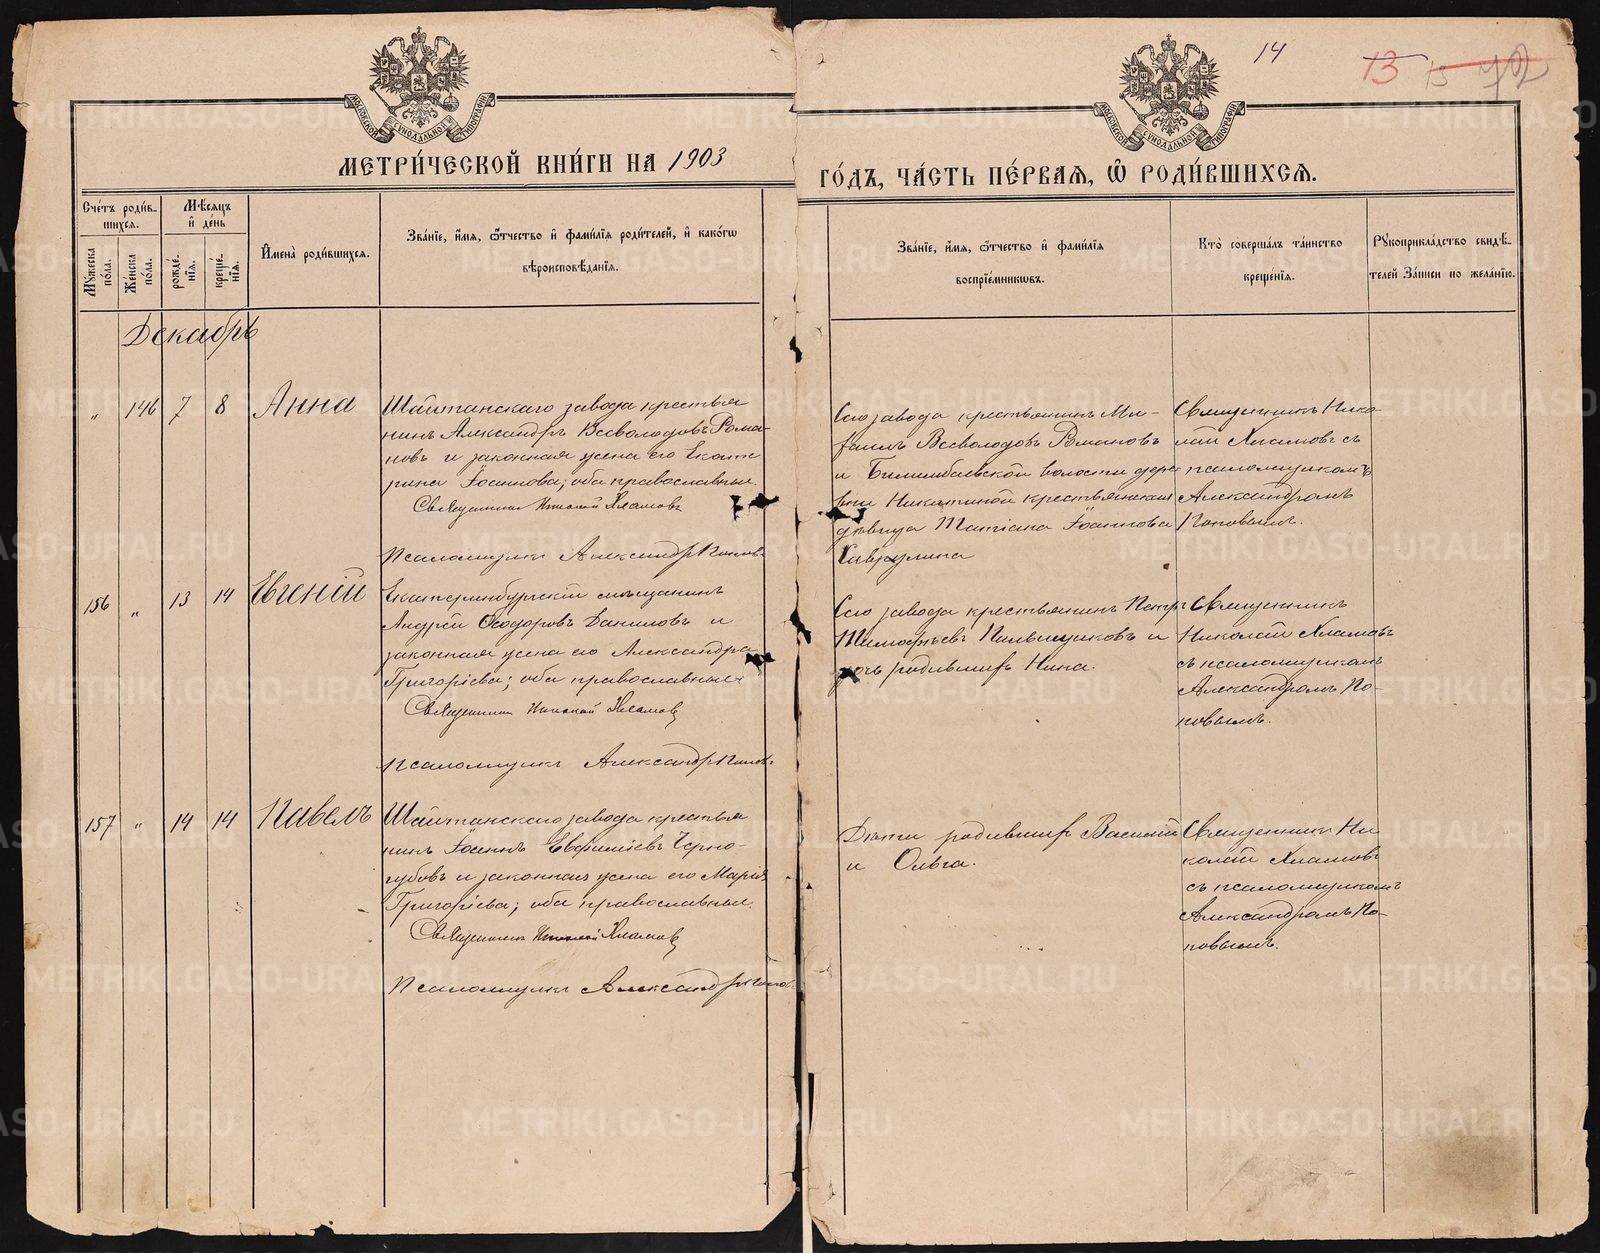 14 13 15
МОСКОВСКОЙ СѴНОДАЛЬНОЙ ТИПОГРАФІИ
МОСКОВСКОЙ СѴНОДАЛЬНОЙ ТИПОГРАФІИ
МЕТРИ́ЧЕСКОЙ КНИ́ГИ НА 1903
ГО́ДЪ, ЧА́СТЬ ПЕ́РВАЯ, Ѡ РОДИ́ВШИХСЯ.
Сче́тъ роди́в-
шихся.
Мꙋжеска
по́ла.
Же́нска
по́ла.
Мѣ́сяцъ
и҆ де́нь
рожде́-
нїѧ.
креще́-
нїѧ.
И҆мена̀ роди́вшихся.
Зва́нїе, и҆́мя, ѻ҆́тчество и҆ фами́лїя роди́телей, и҆ како́гѡ
вѣроисповѣ́данїя.
Зва́нїе, и҆́мя, ѻ҆́тчество и҆ фами́лїя
воспрїе́мникѡвъ.
Кто̀ соверша́лъ та́инство
креще́нїя.
Рꙋкоприкла́дство свидѣ́-
телей за́писи по жела́нїю.
Декабрь
" 146 7 8 Анна
Шайтанскаго завода крестья
нинъ Александръ Всеволодовъ Рома-
новъ и законная жена его Екате
рина Іоаннова; оба православные.
Священникъ Николай Хламовъ
Псаломщикъ Александръ Поповъ
Сего завода крестьянинъ Ми-
хаилъ Всеволодовъ Романовъ
и Билимбаевской волости дере
вни Никитиной крестьянская
дѣвица Татіана Іоаннова
Хаврулина
Священникъ Нико-
лай Хламовъ съ
псаломщикомъ
Александромъ
Поповымъ.
156 " 13 14 Евгеній
Екатеринбургскій мѣщанинъ
Андрей Ѳеодоровъ Даниловъ и
законная жена его Александра
Григоріева; оба православные
Священникъ Николай Хламовъ
Псаломщикъ Александръ Поповъ
Сего завода крестьянинъ Петръ
Тимофѣевъ Пильщиковъ и
дочь родившихъ Нина.
Священникъ
Николай Хламовъ
съ псаломщикомъ
Александромъ По-
повымъ.
157 " 14 14 Павелъ
Шайтанскаго завода крестья
нинъ Іоаннъ Евфиміевъ Черно-
губовъ и законная жена его Марія
Григоріева; оба православные.
Священникъ Николай Хламовъ
Псаломщикъ Александръ Поповъ
Дѣти родившихъ Василій
и Ольга.
Священникъ Ни
колай Хламовъ
съ псаломщикомъ
Александромъ По-
повымъ.
METRIKI.GASO-URAL.RU